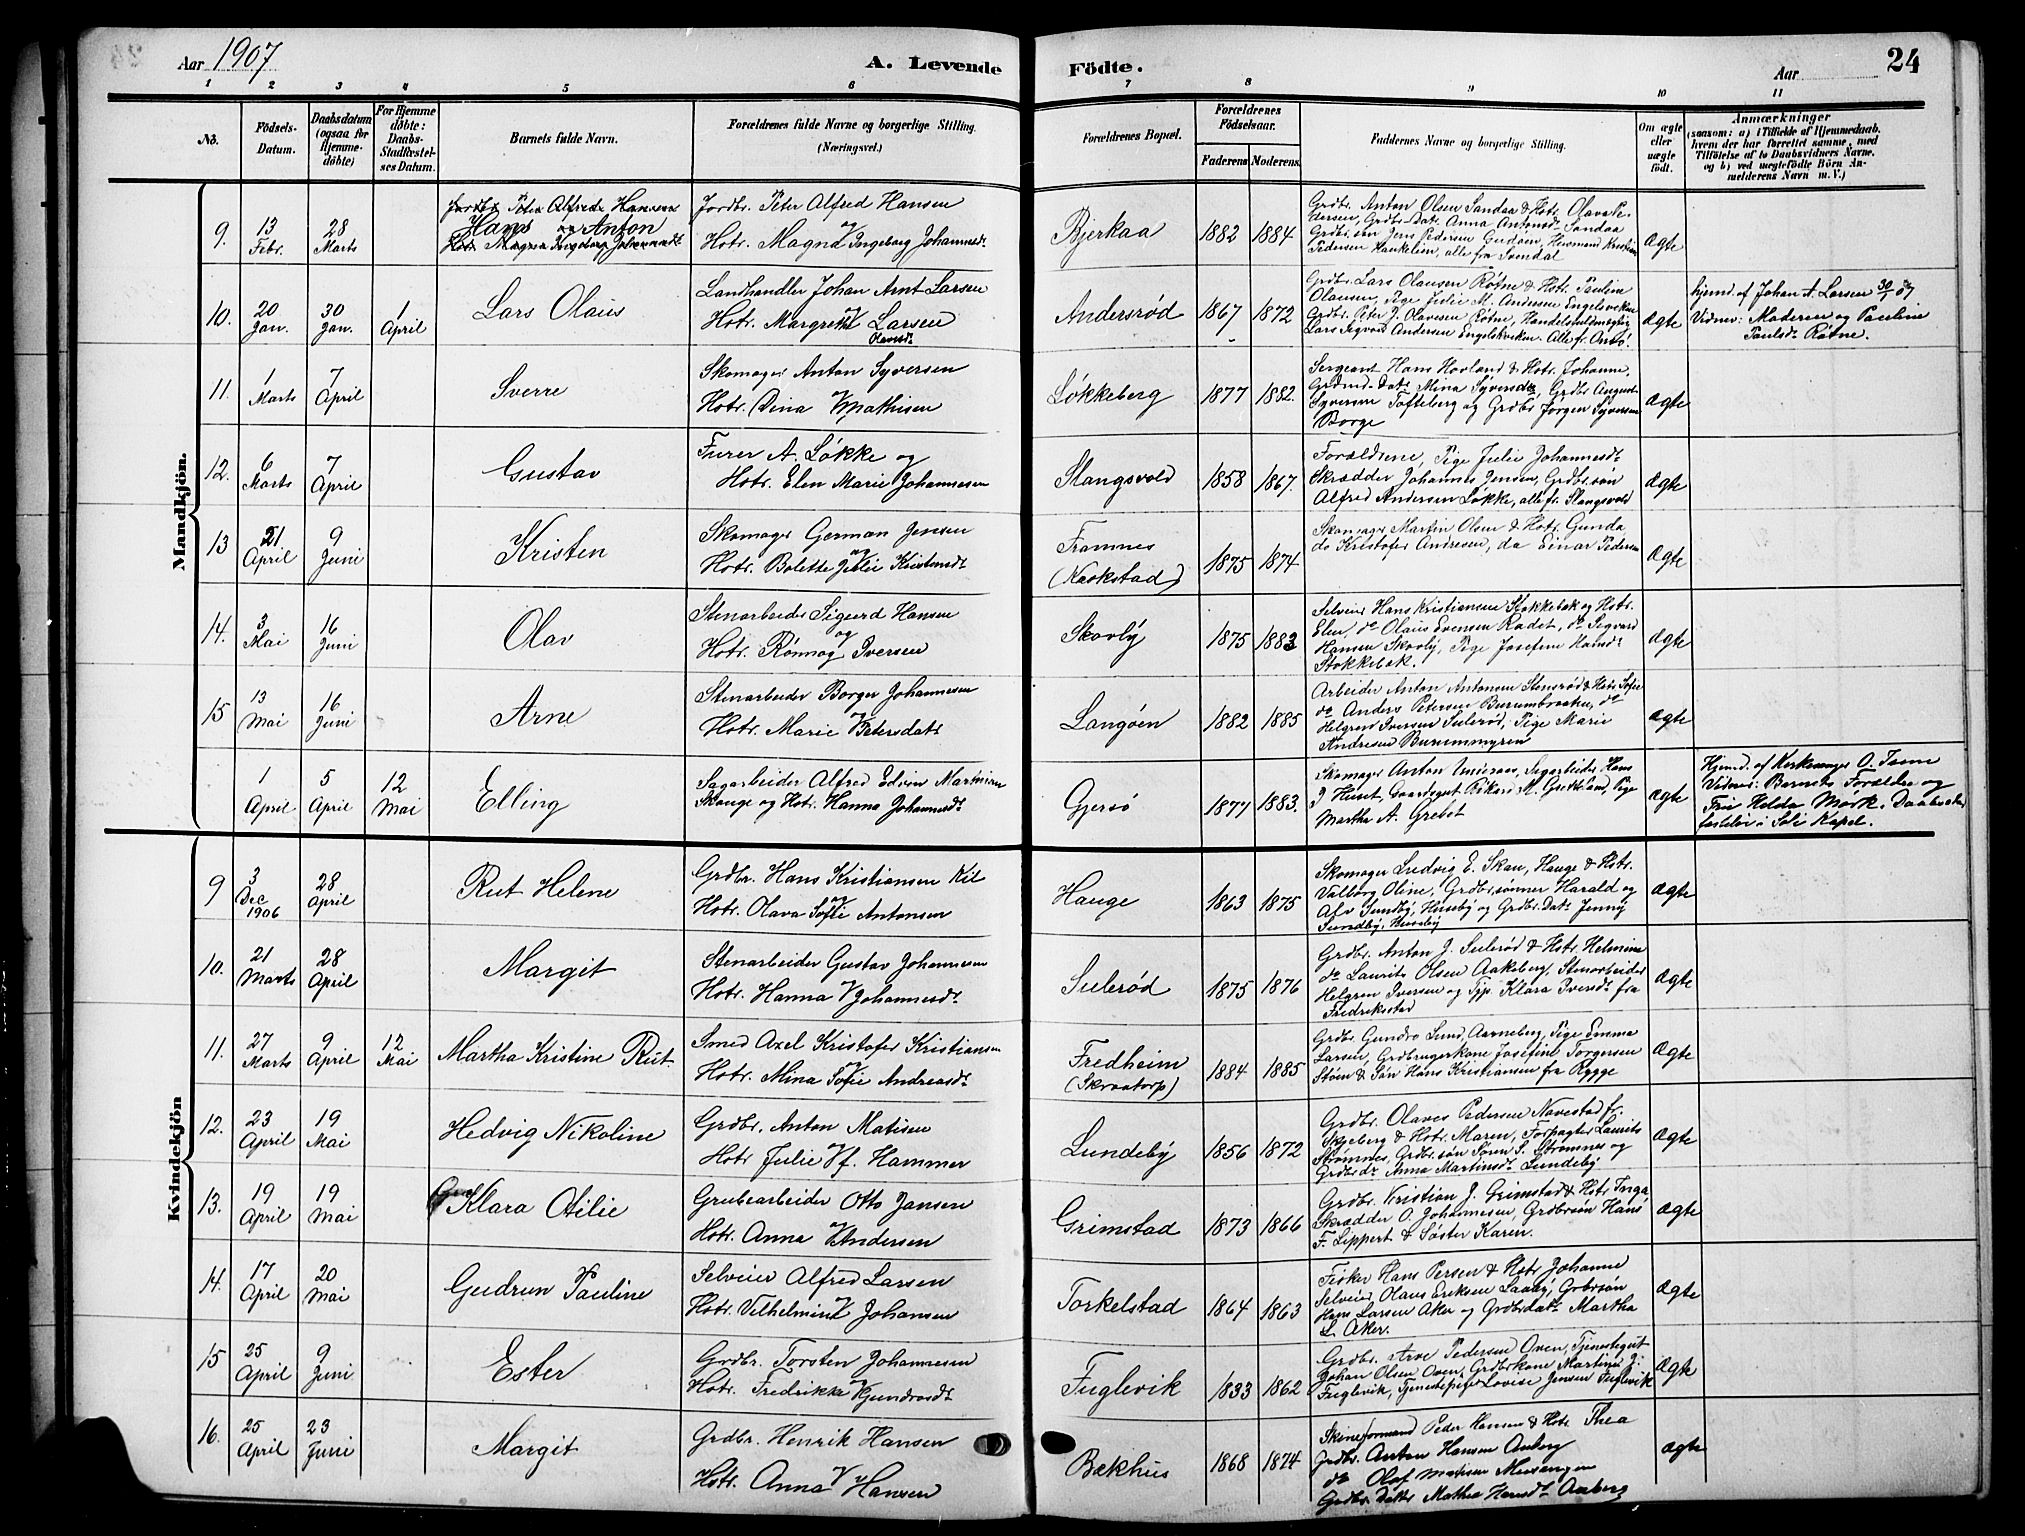 Aar 1907
A. Levende
Födte.
Aar
24
1 2 3 4 5 6 7 8 9 10 11
No.
Födsels-
Datum.
Daabsdatum
(ogsaa for
Hjemme-
döbte)
For Hjemme
döbte:
Daabs-
Stadfæstel-
ses Datum.
Barnets fulde Navn.
Forældrenes fulde Navne og borgerlige Stilling.
(Næringsvei.)
Forældrenes Bopæl.
Forældrenes
Födselsaar.
Faderens
Moderens
Faddernes Navne og borgerlige Stilling.
Om ægte
eller
uægte
födt.
Anmærkninger
(saasom: a) i Tilfælde af Hjemmedaab.
hvem der har forrettet samme, med
Tilföielse af to Daabsvidners Navne.
og b) ved uægtefödte Börn An-
melderens Navn m. V.)
Mandkjön.
9.
13
Febr.
28
Marts
Jordbr. Peter Alfred Hansen
Hans Anton
Hotr. Magna Ingeborg Johannesdt
Jordbr. Peter Alfred Hansen
Hotr. Magna Ingeborg Johannesdt
Bjerkaa
1882
1884
Grdbr. Anton Olsen Sandaa & Hotr. Olava Pe-
dersen, Grdbr. Datr. Anna Antonsdt Sandaa
Grdbr. søn Jens Pedersen Gudøen, Husmand Kristian
Pedersen Haukelien, alle fra Svendal
Ægte
10.
20
Jan.
30
Jan.
1
April
Lars Olaus
Landhandler Johan Arnt Larsen
Hotr. Margrethe Larsen
Olavesdt
Andersrød
1867
1872
Grdbr. Lars Olausen Røtne & Hotr. Pauline
Olausen, Pige Julie M. Andersen Engelsviken
Grdbr. Peter J. Olavesen Røtne, Handelsfuldmægtig
Lars Sigvard Andersen Engelsviken. Alle fr. Onsø.
Ægte
hjemd. af Johan A. Larsen 30/1 07
Vidner: Moderen og Pauline
Paulsdt Røtne.
11.
1
Marts
7
April
Sverre
Skomager Anton Syversen
Hotr. Dina Mathisen
Løkkeberg
1877
1882.
Sergeant Hans Hovland & Hotr. Johanne,
Grdmd. Datr. Mina Syversdt, Grdbr. August
Syversen Tofteberg og Grdbr. Jørgen Syversen
Borge
Ægte
12.
6
Marts
7
April
Gustav
Furer A. Løkke og
Hotr. Elen Marie Johannesen
Slangsvold
1858
1867.
Forældrene, Pige Julie Johannesdt
Skrædder Johannes Jensen, Grdbr. søn
Alfred Andersen Løkke, alle fr. Slangsvold
Ægte
13
21
April
9
Juni
Kristen
Skomager German Jensen
Hotr. Bolette Julie Kristensdt
Framnes
(Karlstad)
1875
1874
Skomager Martin Olsen & Hotr. Gunda
do Kristofer Andresen, do Einar Pedersen
Ægte
14.
3
Mai
16
Juni
Olav
Stenarbeider Sigurd Hansen
og
Hotr. Rønnog Iversen
Skovly
1875
1883
Selveier Hans Kristiansen Stokkebak og Hotr.
Elen, do Olaus Evensen Radet, do Sigvard
Hansen Skovly, Pige Josefine Hansdt
Stokkebak.
Ægte
15
13
Mai
16
Juni
Arne
Stenarbeider Borger Johannesen
Hotr. Marie Petersdatr
Langøen
1882
1885
Arbeider Anton Antonsen Stensrød & Hotr. Sofie
do Anders Petersen Burumbraaten, do
Helgren Iversen Sulerød, Pige Marie
Andresen Burummyren
Ægte
1
April
5
April
12
Mai
Elling
Sagarbeider Alfred Edvin Martinsen
Skauge og Hotr. Hanna Johannesdt
Gjersø
1877
1883.
Skomager Anton Unneraas, Sagarbeider Hans
J Huset, Gaardsgut Rikard M. Grekland, Pige
Martha A. Grebet
Ægte
Hjemd. af Kirkesanger O. Tsene
Vidner: Barnets Forældre og
Fru Helda Mørk. Daabsstad-
fæstelse i Soli Kapel.
Kvindekjön
9
3
Dec
1906
28
April
Rut Helene
Grdbr. Hans Kristiansen Kil
Hotr. Olava Sofie Antonsen
Hauge
1863
1875
Skomager Ludvig E. Skau, Hauge & Hotr.
Valborg Oline, Grdbr. sønner Harald og
Alv Sundby, Huseby og Grdbr. Datr Jenny
Sundby, Huseby
Ægte
10.
21
Marts
28
April
Margit
Stenarbeider Gustav Johannesen
Hotr. Hanna Johannesdt
Sulerød
1875
1876
Grdbr. Anton J. Sulerød & Hotr. Helmine
do Laurits Olsen Aakeberg, Stenarbeider
Helgren Iversen og Tjp. Klara Iversdt fra
Fredrikstad
Ægte
11.
27
Marts
9
April
12
Mai
Martha Kristine Rut.
Smed Axel Kristofer Kristiansen
Hotr. Mina Sofie Andreasdt
Fredheim
(Skraatorp)
1884
1885
Grdbr. Gundro Lund, Aarneberg, Pige Emma
Larsen, Grdbrugerkone Josefine Torgersen
Støen & Søn Hans Kristiansen fra Rygge
Ægte
12.
23
April
19
Mai
Hedvig Nikoline
Grdbr. Anton Matisen
Hotr Julie f. Hammer
Lundeby
1856
1872
Grdbr. Olaves Pedersen Navestad fr.
Skjeberg & Hotr. Maren, Forpagter Laurits
Strømnes, Grdbr. søn Søren S. Strømnes og
Grdbr. dr Anna Martinsdt Lundeby
Ægte
13.
19
April
19
Mai
Klara Otilie
Grubearbeider Otto Jansen
Hotr. Anna Andersen
Grimstad
1873
1866
Grdbr. Kristian J. Grimstad & Hotr Inga
Skrædder O. Johannesen, Grdbrsøn Hans
F. Lippert & Søster Karen.
Ægte
14.
17
April
20
Mai
Gudrun Pauline
Selveier Alfred Larsen
Hotr. Vilhelmine Johansen
Torkelstad
1864
1863
Fisker Hans Persen & Hotr Johanne
Selveier Olaus Eriksen Laaby, Grdbrsøn
Hans Larsen Aker og Grdbr. datr Martha
L. Aker.
Ægte
15
25
April
9
Juni
Ester
Grdbr. Torsten Johannesen
Hotr. Fredrikke Gundrosdt
Fuglevik
1833
1862
Grdbr. Arve Pedersen Oven, Tjenestegut
Johan Olsen Oven, Grdbrkone Martine J.
Fuglevik, Tjenestepige Lovise Jensen Fuglevik
Ægte
16.
25
April
23
Juni
Margit
Grdbr. Henrik Hansen
Hotr. Anna Hansen
Bækhus
1868
1874
Skineformand Peder Hansen & Hotr. Thea
Grdbr. Anton Hansen Aaberg
do Olaf Matisen Mosengen
Grdbr. Datter Mathea Hansdt Aaberg
Ægte